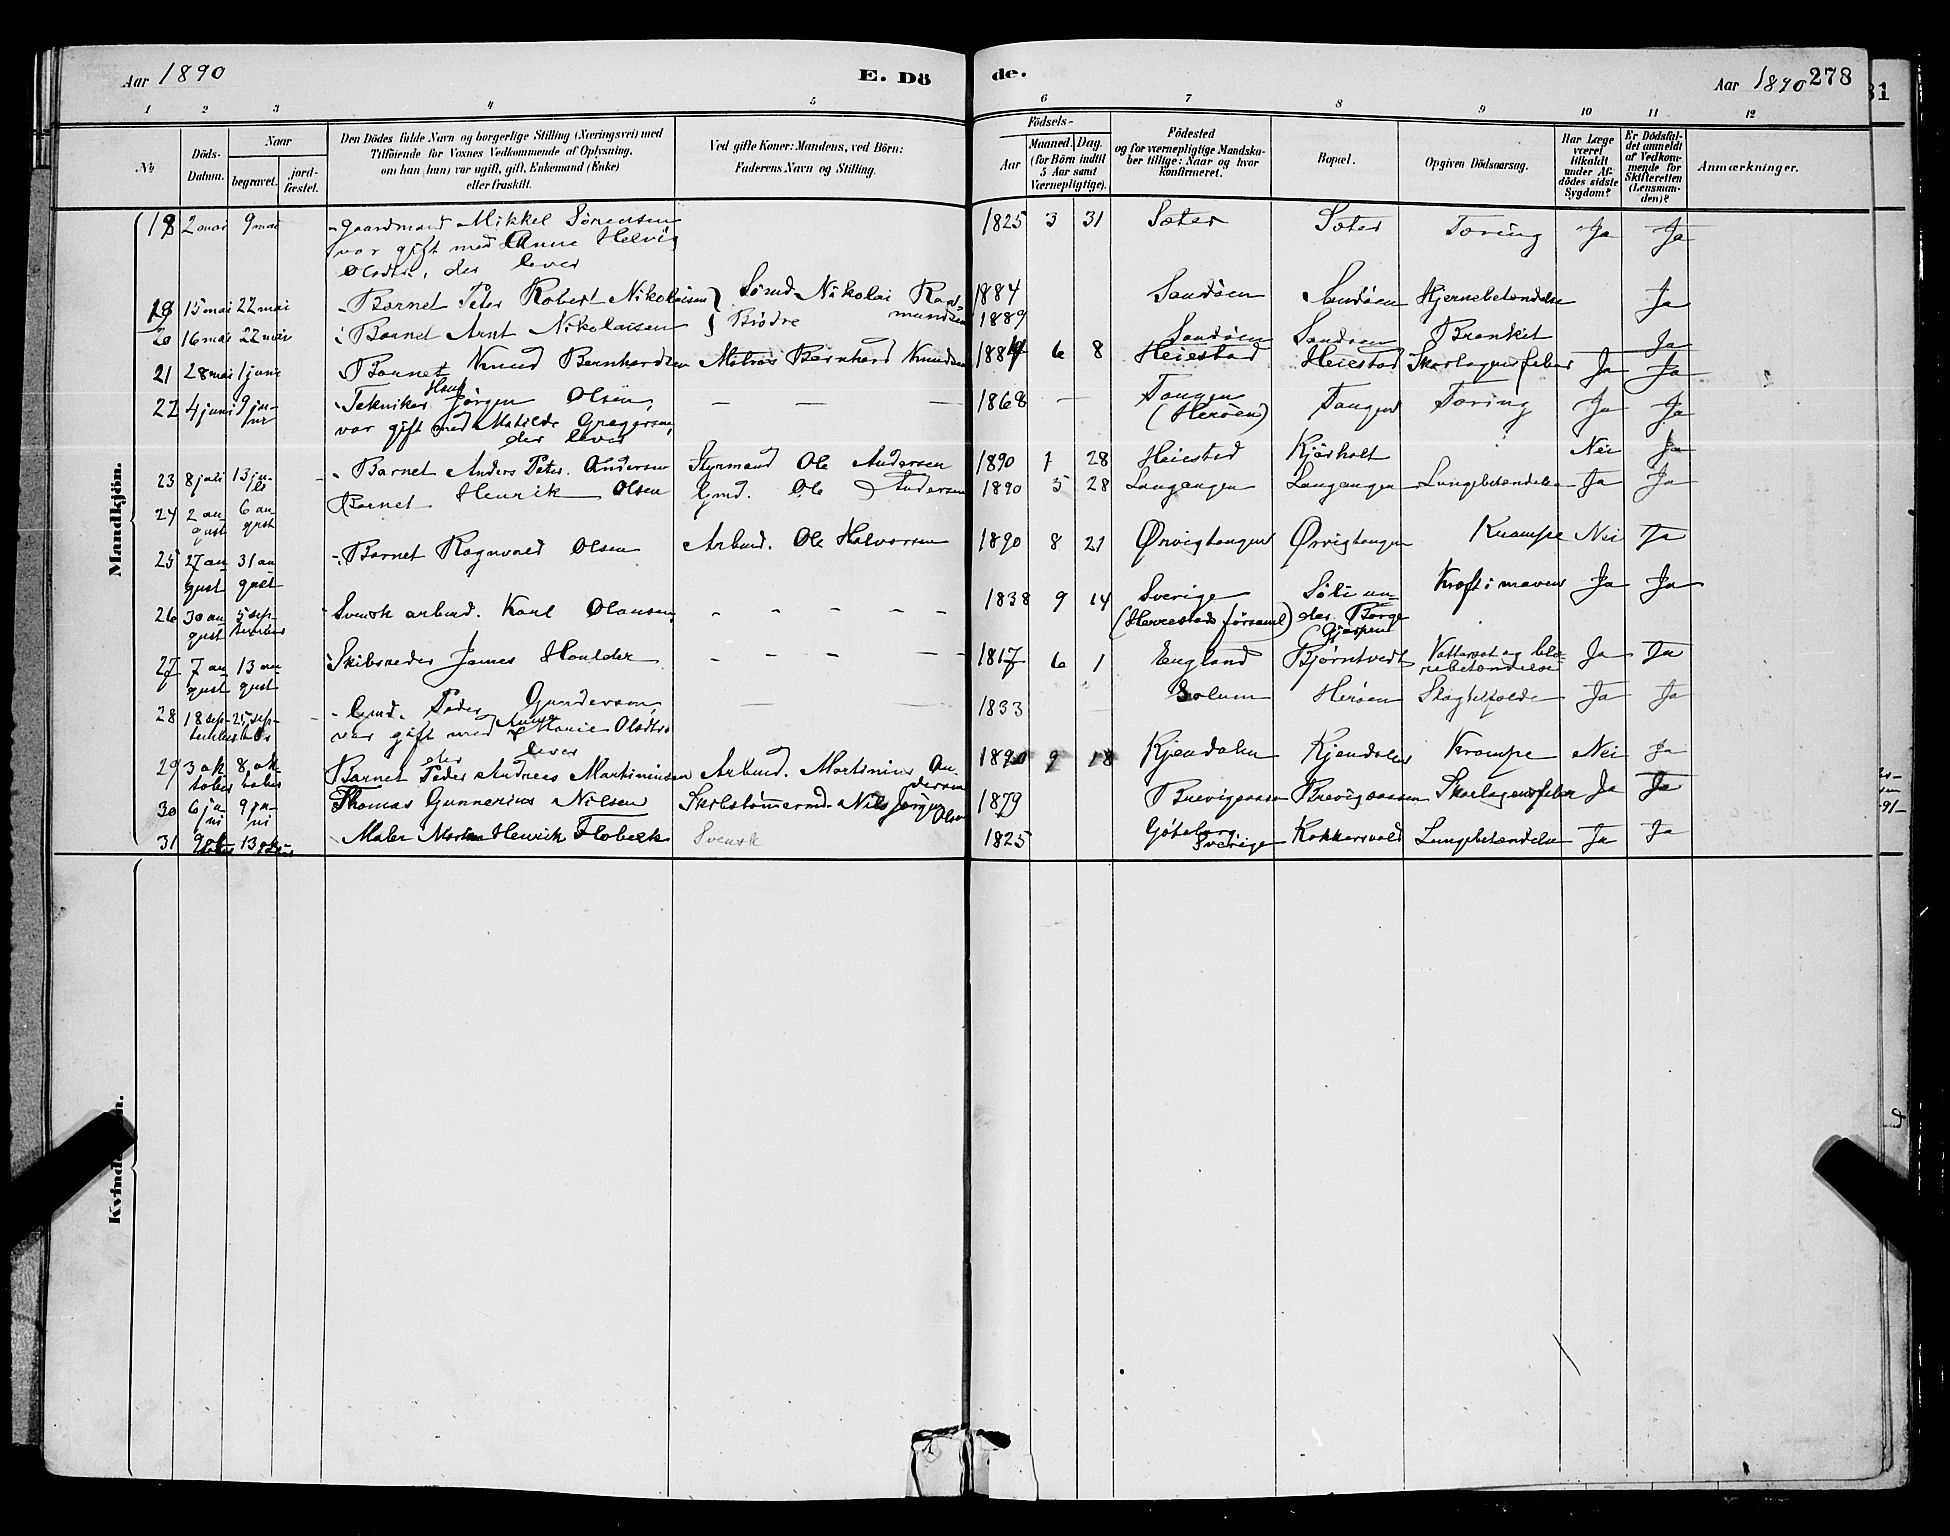 Aar 1890
E. Dö
de.
Aar 1890 278
1 2 3 4 5 6 7 8 9 10 11 12
No
Döds-
Datum.
Naar
begravet.
jord-
fæstet.
Den Dödes fulde Navn og borgerlige Stilling (Næringsvei) med
Tilföiende for Voxnes Vedkommende af Oplysning,
om han (hun) var ugift, gift, Enkemand (Enke)
eller fraskilt.
Ved gifte Koner: Mandens, ved Börn:
Faderens Navn og Stilling.
Födsels-
Aar
Maaned. Dag.
(for Börn indtil
5 Aar samt
Værnepligtige).
Födested
og for værnepligtige Mandska-
ber tillige: Naar og hvor
konfirmeret.
Bopæl.
Opgiven Dödsaarsag.
Har Læge
været
tilkaldt
under Af-
dödes sidste
Sygdom?
Er Dödsfal-
det anmeldt
af Vedkom-
mende for
Skifteretten
(Lensman-
den)?
Anmærkninger.
Mandkjön.
18 2 mai 9 mai Gaardmand Mikkel Sörensen 1825 3 31 Sæter Sæter Tæring Ja Ja
var gift med Anne Helvig
Olsdtr, der lever
19 15 mai 22 mai Barnet Peter Robert Nikolaisen Sömd. Nikolai 1884 Sandöen Sandöen Hjernebetændelse Ja
20 16 mai 22 mai Barnet Arnt Nikolaisen Brödre 1889 Sandöen Sandöen Bronkit Ja
21 28 mai 1 juni Barnet Knud Bernhardsen Matros Bernhard Knudsen 1884 6 8 Heiestad Heiestad Skarlagensfeber Ja Ja
22 4 juni 9 ju-
ni Tekniker Hans Jörgen Olsen, — — — 1868 — Tangen Tangen Tæring Ja Ja
var gift med Matilde Gregersen, (Heröen)
der lever
23 8 juli 13 ju-
li Barnet Anders Peter Andersen Styrmand Ole Andersen 1890 1 28 Heiestad Kjörholt Nei Ja
24 2 au-
gust 6 au-
gust Barnet Henrik Olsen Gmd. Ole Andersen 1890 5 28 Langangen Langangen Lungebetændelse Ja Ja
25 27 au-
gust 31 au-
gust Barnet Ragnvald Olsen Arbmd. Ole Halvorsen 1890 8 21 Ørvigtangen Ørvigtangen Krampe Nei Ja
26 30 au-
gust 5 sep-
tember Svensk arbmd. Karl Olausen, - - - - - 1838 9 14 Sverige Söli un- Kræft i maven Ja Ja
(Herrestads församl) der Borge
Gjerpen
27 7 au-
gust 13 au-
gust Skibsreder James Houlder - - - - - 1817 6 1 England Björntvedt Vattersot og blæ- Ja Ja
rebetændelse
28 18 sep-
tember 25 sep-
tember Gmd. Peder Gundersen, 1833 Solum Heröen Ja Ja
var gift med Anne Marie Olsdtr
der lever
29 3 ok-
tober 8 ok-
tober Barnet Peder Andreas Martiniussen Arbmd. Martinius An-
dersen 1890 9 18 Kjendalen Kjendalen Krampe Nei Ja
30 6 ju-
ni 9 ju-
ni Thomas Gunnerius Nilsen Skibstömmermd. Nils Jørgen Olsen 1879 Brevigsaasen Brevigsaasen Skarlagensfeber Ja Ja
31 9 ok-
tober 13 oktober Maler Henrik Flobeck Svensk 1825 Göteborg Kokkersvold Lungebetændelse Ja Ja
Sverige